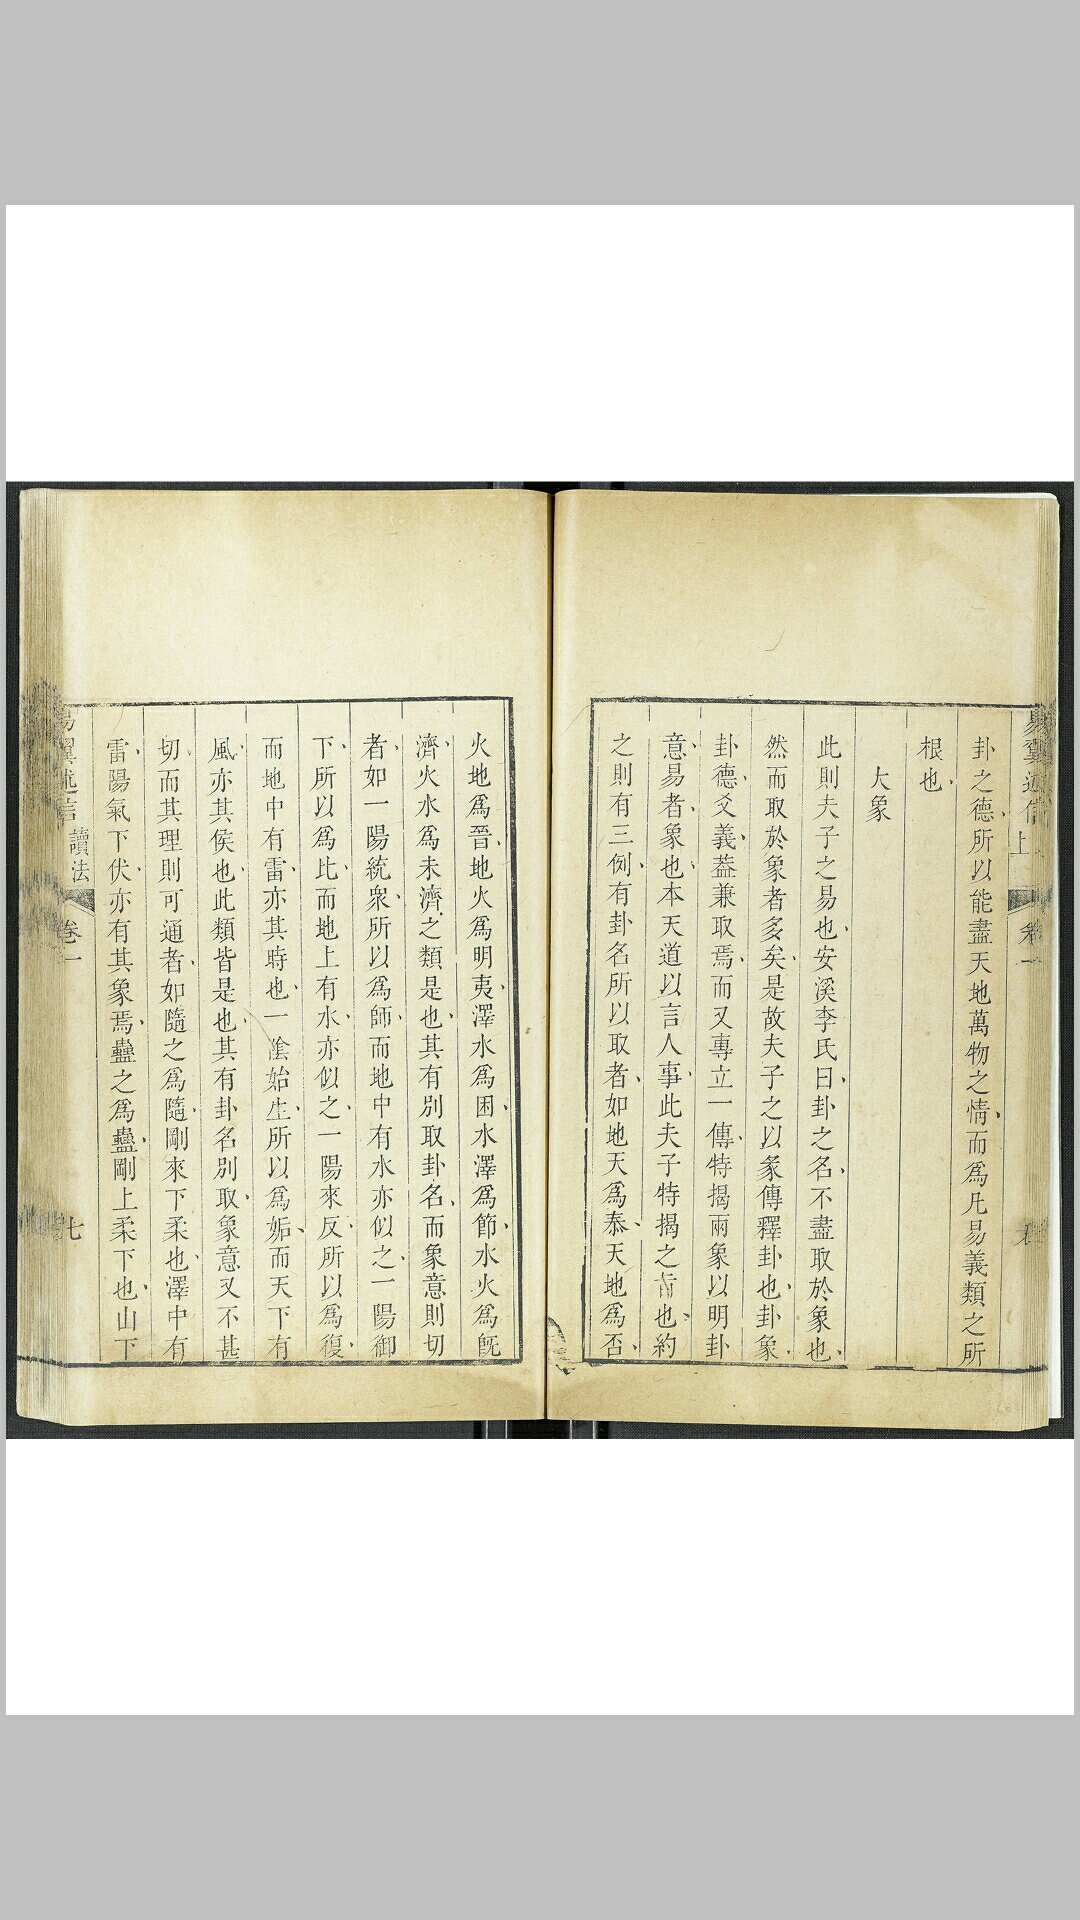 卦之德所以能盡天地萬物之情而爲凡易義類之所
根也
大象
此則夫子之易也安溪李氏曰卦之名不盡取於象也
然而取於象者多矣是故夫子之以彖傳釋卦也卦象
卦德爻義葢兼取焉而又專立一傳特揭兩象以明卦
意易者象也本天道以言人事此夫子特揭之旨也約
之則有三例有卦名所以取者如地天爲泰天地爲否
火地爲晉地火爲明夷澤水爲困水澤爲節水火爲旣
濟火水爲未濟之類是也其有別取卦名而象意則切
者如一陽統衆所以爲師而地中有水亦似之一陽御
下所以爲比而地上有水亦似之一陽來反所以爲復
而地中有雷亦其時也一陰始生所以爲姤而天下有
風亦其侯也此類皆是也其有卦名別取象意又不甚
切而其理則可通者如隨之爲隨剛來下柔也澤中有
雷陽氣下伏亦有其象焉蠱之爲蠱剛上柔下也山下
易翼述信 讀法 卷一 七